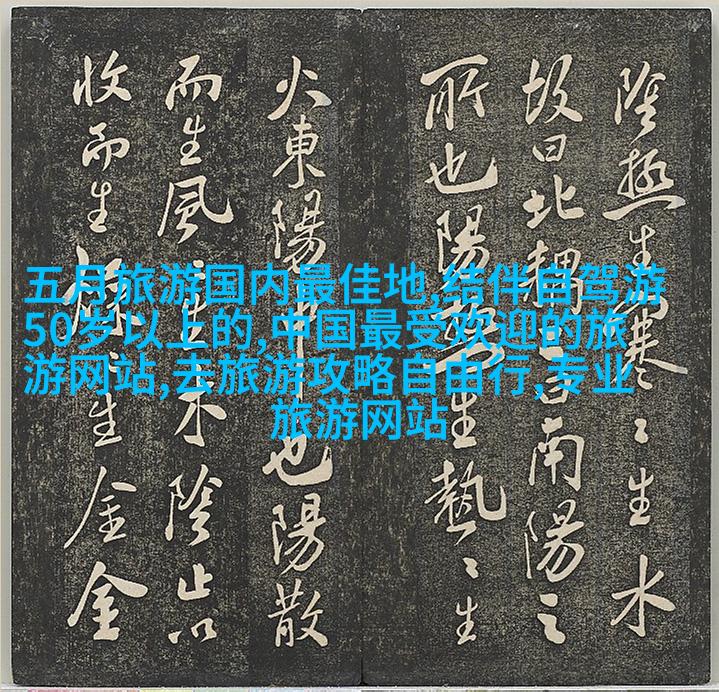 五月旅游国内最佳地,结伴自驾游
50岁以上的,中国最受欢迎的旅
游网站,去旅游攻略自由行,专业
旅游网站
陰極生寒〻生水
故曰北耦言南陽之
所也陽生熱〻生
火東陽中也陽散
而生風〻生木陰止以
收而生燥〻生金金